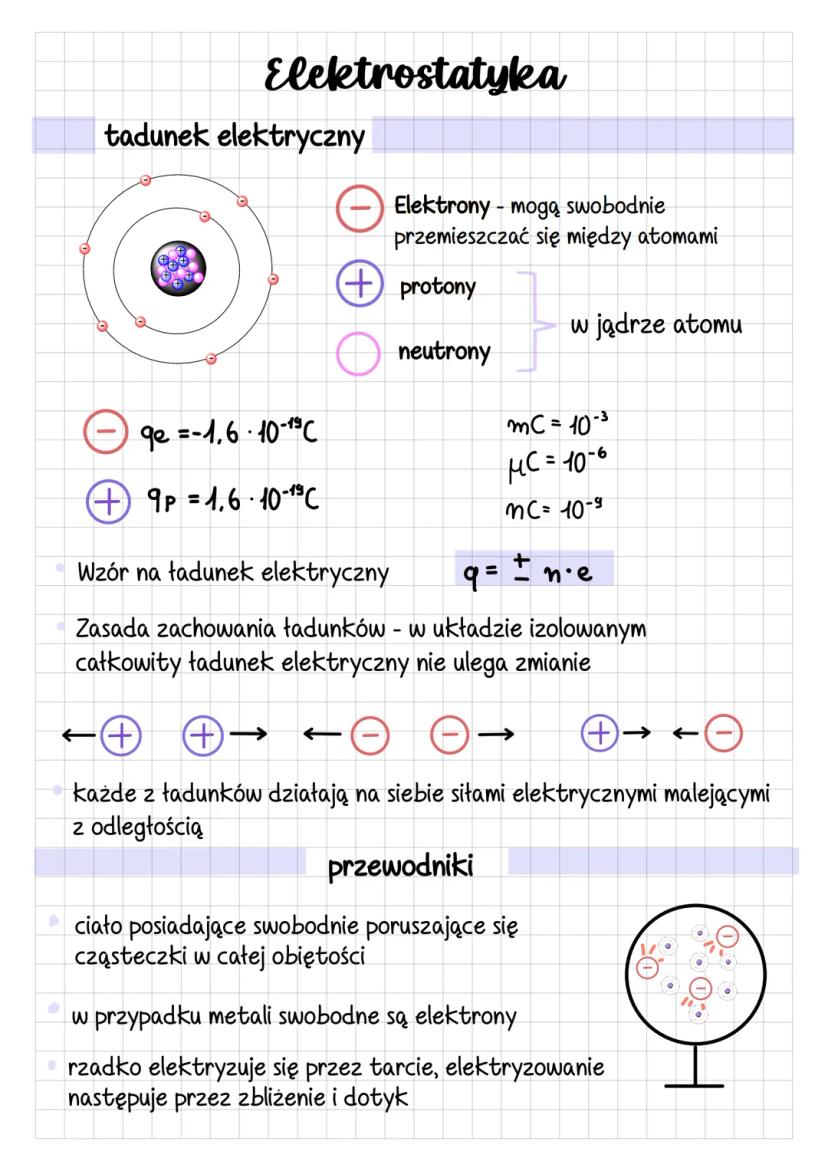 Elektrostatyka
ładunek elektryczny
Elektrony - mogą swobodnie
przemieszczać się między atomami
protony
neutrony
w jądrze atomu
qe =-1,6 · 10⁻¹⁹C
mC = 10⁻³
μC = 10⁻⁶
qp = 1,6 · 10⁻¹⁹C
nC= 10⁻⁹
Wzór na ładunek elektryczny
q = ± n·e
Zasada zachowania ładunków - w układzie izolowanym
całkowity ładunek elektryczny nie ulega zmianie
← + + → ← - - → + → ← -
Każde z ładunków działają na siebie siłami elektrycznymi malejącymi
z odległością
przewodniki
ciało posiadające swobodnie poruszające się
cząsteczki w całej obiętości
w przypadku metali swobodne są elektrony
rzadko elektryzuje się przez tarcie, elektryzowanie
następuje przez zbliżenie i dotyk